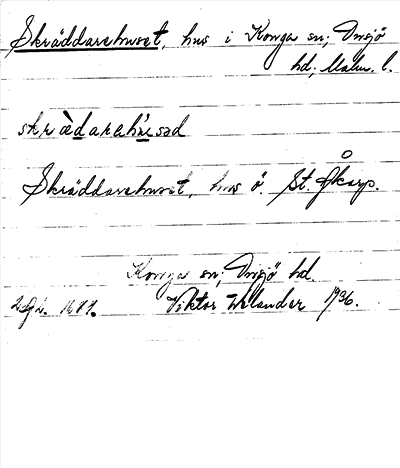 Skräddarehuset, hus i Konga sn, Onsjö
hd, Malm. l.
skrädarehused
Skräddarehuset, hus ö. St. Åkarp.
Konga sn, Onsjö hd.
Viktor Welander 1936.